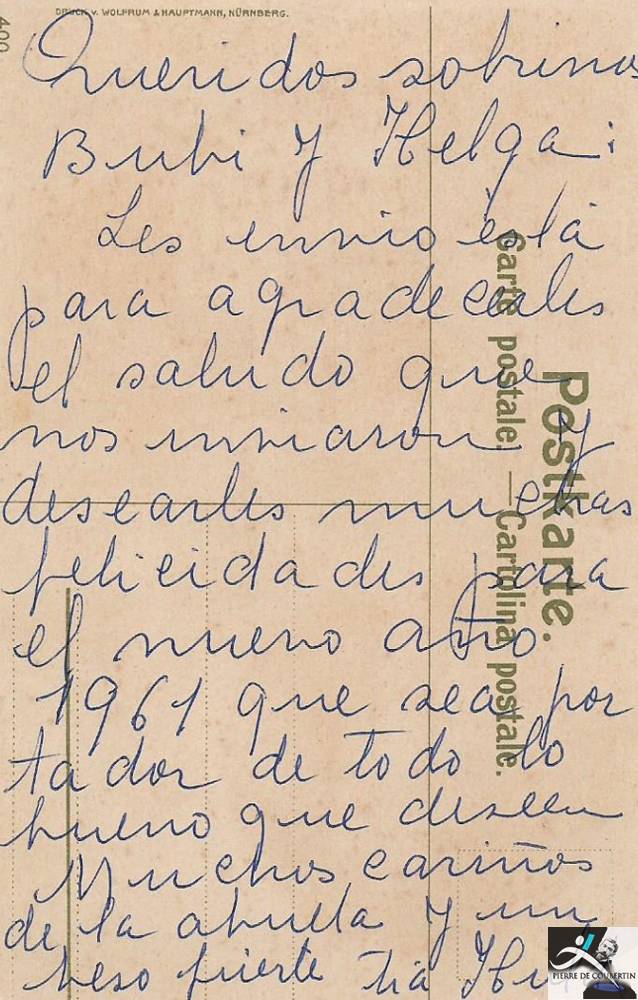 DRUCK v. WOLFRUM & HAUPTMANN, NÜRNBERG.
400
Queridos sobrinos
Bubi y Helga:
Les envio ésta
para agradecerles
el saludo que
nos enviaron y
desearles muchas
felicidades para
el nuevo año
1961 que sea por
tador de todo lo
bueno que deseen
Muchos cariños
de la abuela y un
beso fuerte tia
Postkarte.
Carte postale. — Cartolina postale.
PIERRE DE COUBERTIN